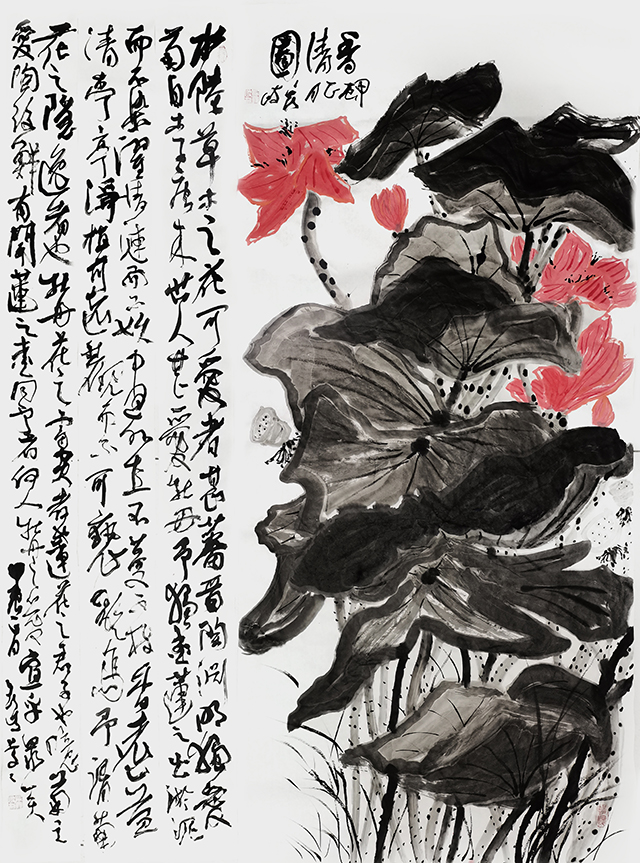 香
清
圖
水陸草木之花可愛者甚蕃晉陶淵明獨愛
菊自李唐來世人甚愛牡丹予獨愛蓮之出淤泥
而不染濯清漣而不妖中通外直不蔓不枝香遠益
清亭亭淨植可遠觀而不可褻玩焉予謂菊
花之隱逸者也牡丹花之富貴者蓮花之君子也噫菊之
愛陶後鮮有聞蓮之愛同予者何人牡丹之愛宜乎眾矣